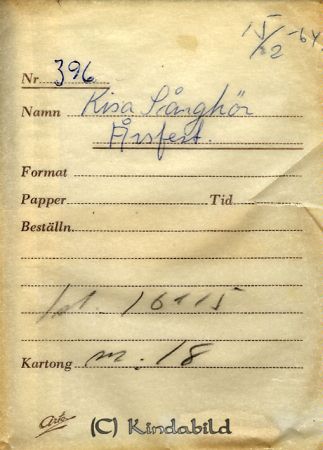 15/2 -64
Nr. 396
Namn Kisa Sångkör
Årsfest.
Format
Papper Tid
Beställn.
kl. 16115
Kartong m. 18
Arto
(C) Kindabild